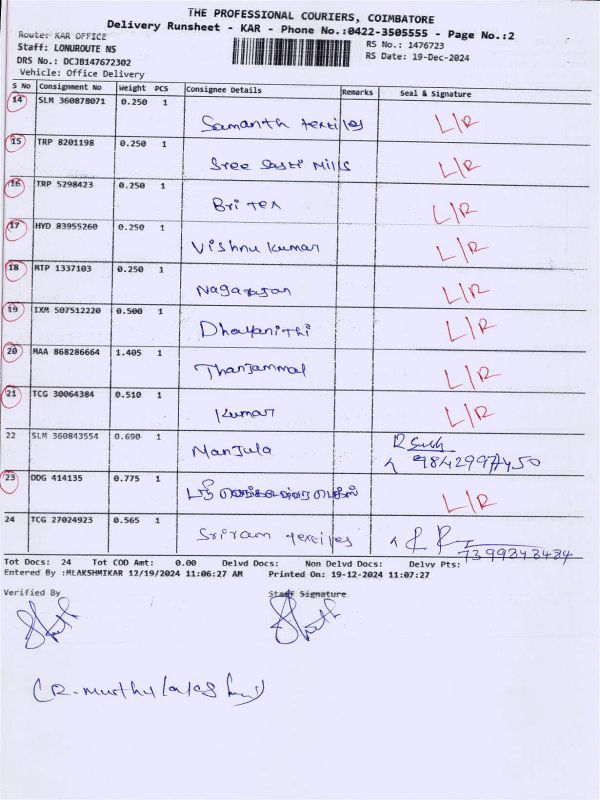 THE PROFESSIONAL COURIERS, COIMBATORE
Delivery Runsheet - KAR - Phone No.:0422-3505555 - Page No.:2
Route: KAR OFFICE
RS No.: 1476723
Staff: LONUROUTE NS
RS Date: 19-Dec-2024
DRS No.: DCJB147672302
Vehicle: Office Delivery
S No Consignment No Weight PCS Consignee Details Remarks Seal & Signature
14 SLM 360878071 0.250 1
Samanth textiles L/R
15 TRP 8201198 0.250 1
Sree Sasti Mills L/R
16 TRP 5298423 0.250 1
Bri tex L/R
17 HYD 83955260 0.250 1
Vishnu kumar L/R
18 MTP 1337103 0.250 1
Nagarajan L/R
19 IXM 507512220 0.500 1
Dhayanithi L/R
20 MAA 868286664 1.405 1
Thanjammal L/R
21 TCG 30064384 0.510 1
Kumar L/R
22 SLM 360843554 0.690 1
Manjula
23 DDG 414135 0.775 1
L/R
24 TCG 27024923 0.565 1
Sriram textiles
Tot Docs: 24 Tot COD Amt: 0.00 Delvd Docs: Non Delvd Docs: Delvy Pts:
Entered By :MLAKSHMIKAR 12/19/2024 11:06:27 AM Printed On: 19-12-2024 11:07:27
Verified By Staff Signature